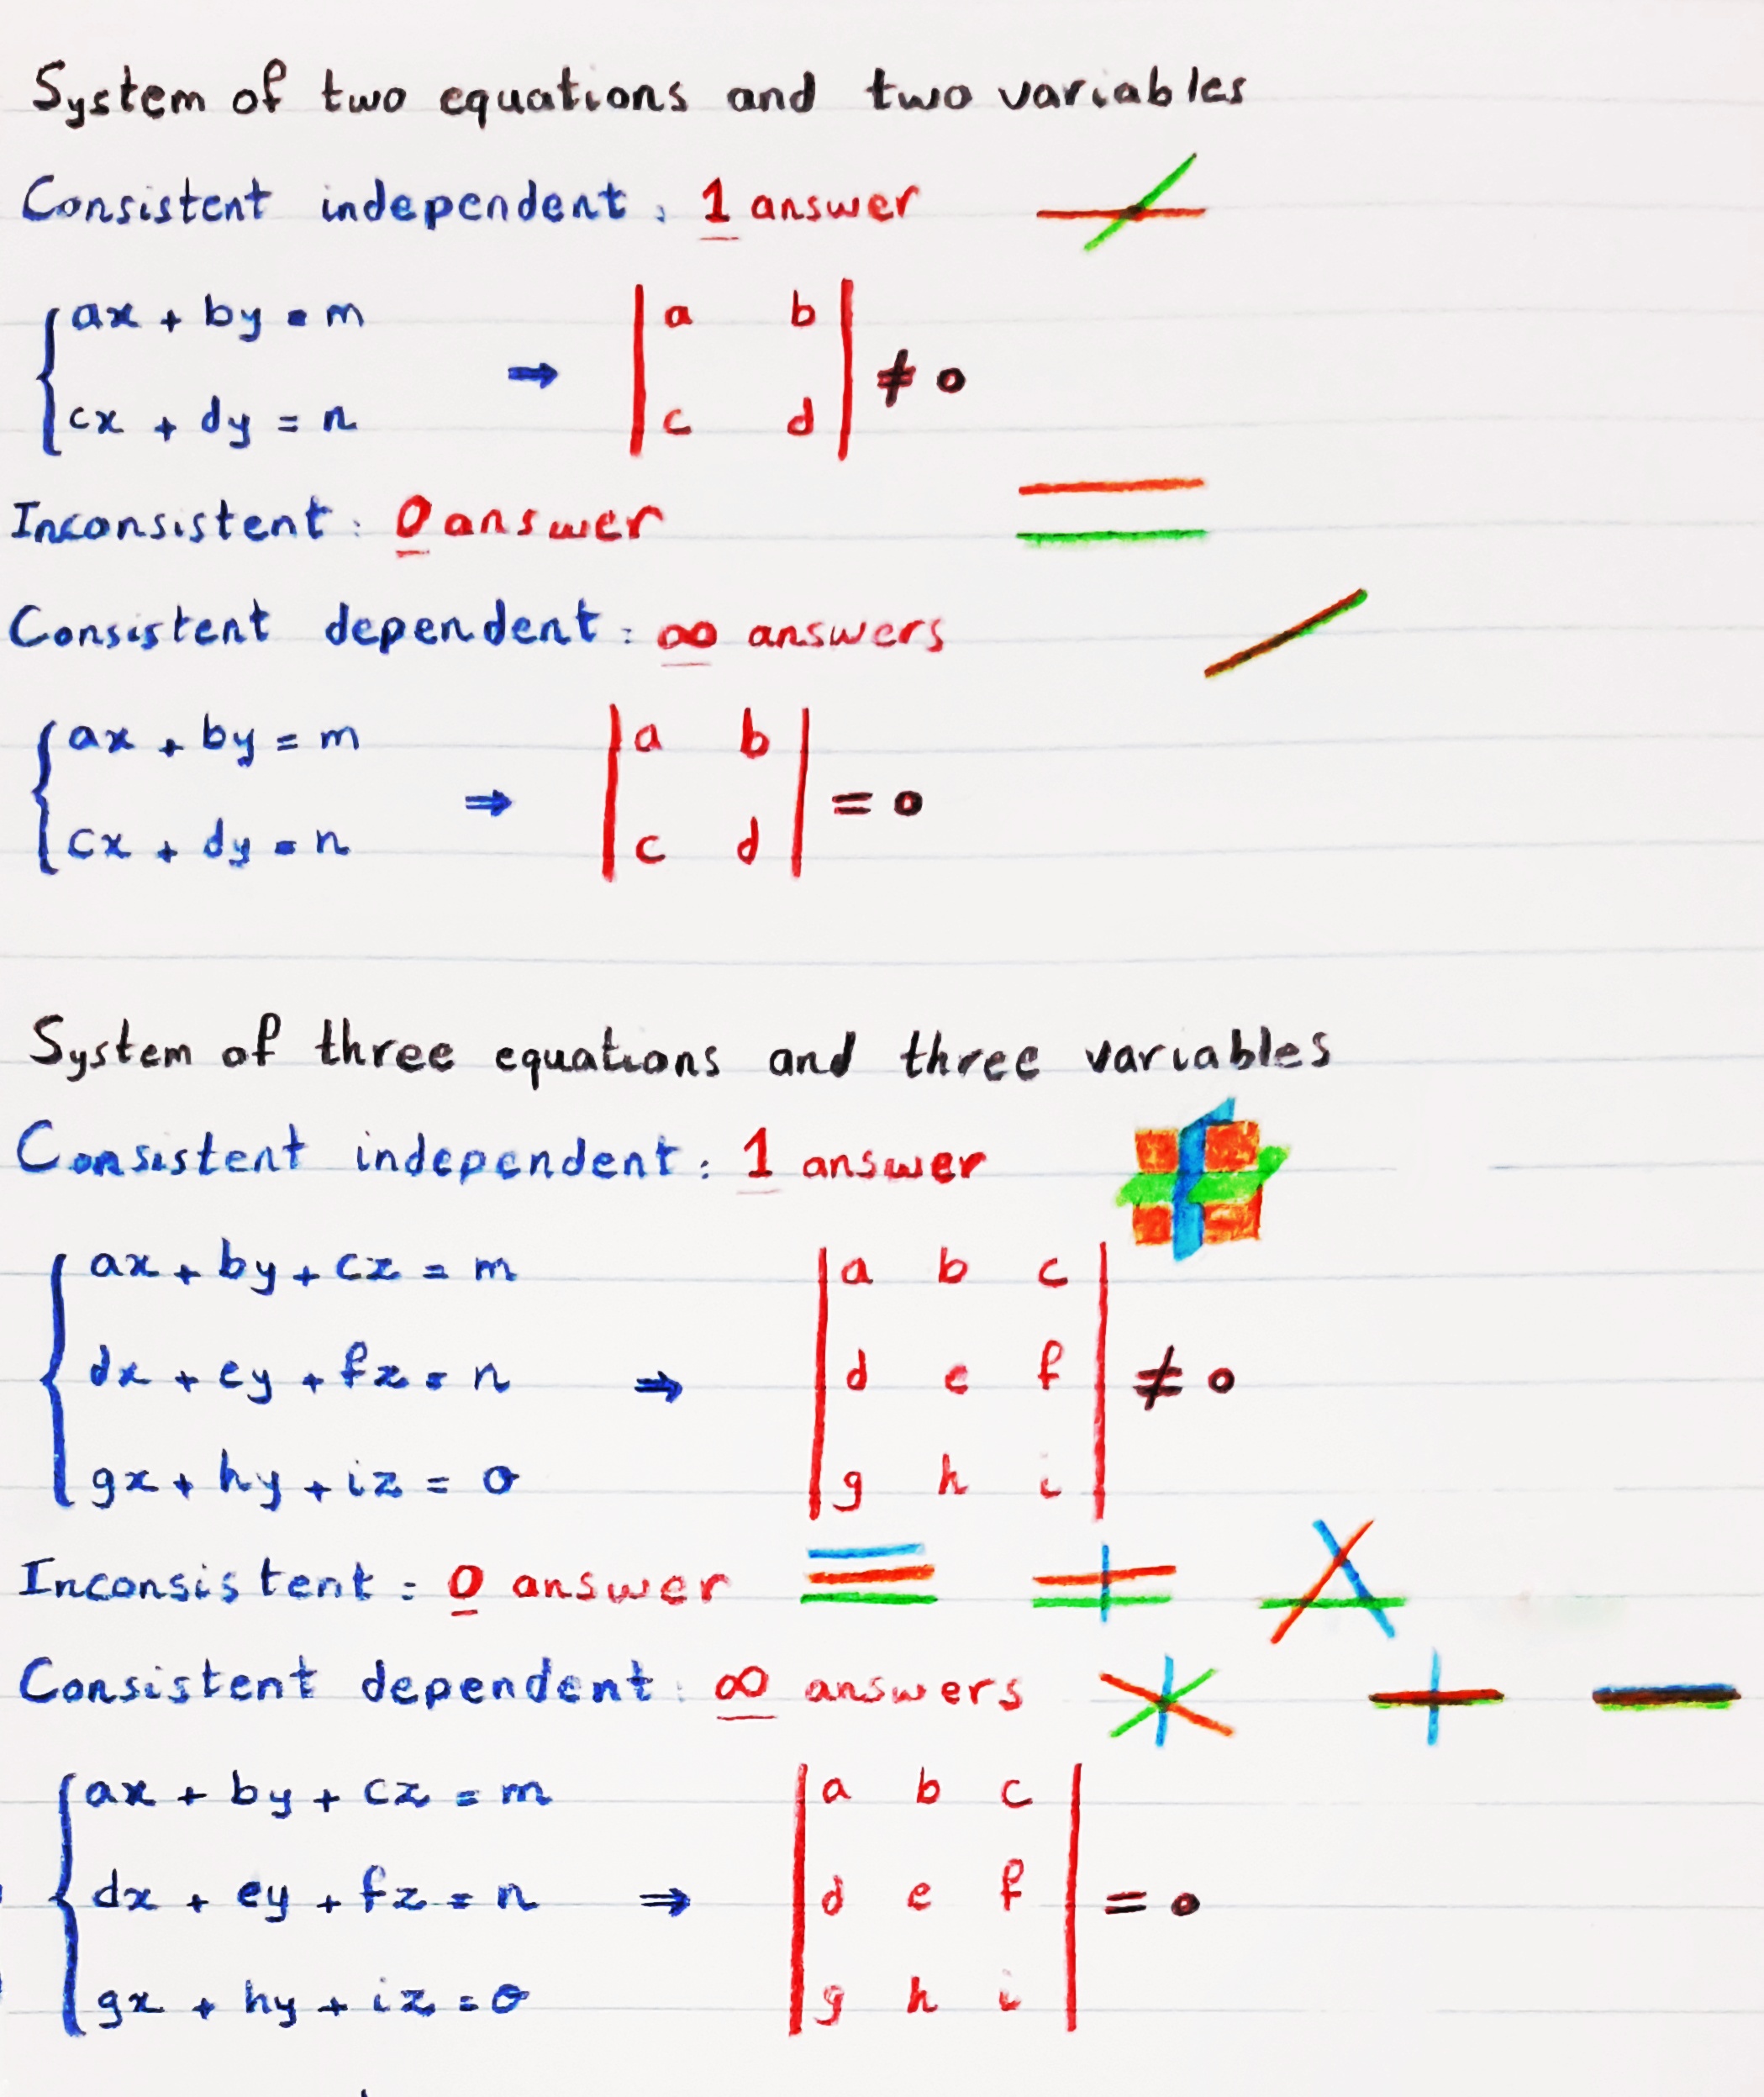 System of two equations and two variables
Consistent independent: 1 answer
ax + by = m
cx + dy = n
⇒
| a b |
| c d |
≠ 0
Inconsistent: 0 answer
Consistent dependent: ∞ answers
ax + by = m
cx + dy = n
⇒
| a b |
| c d |
= 0
System of three equations and three variables
Consistent independent: 1 answer
ax + by + cz = m
dx + ey + fz = n
gx + hy + iz = o
⇒
| a b c |
| d e f |
| g h i |
≠ 0
Inconsistent: 0 answer
Consistent dependent: ∞ answers
ax + by + cz = m
dx + ey + fz = n
gx + hy + iz = o
⇒
| a b c |
| d e f |
| g h i |
= 0